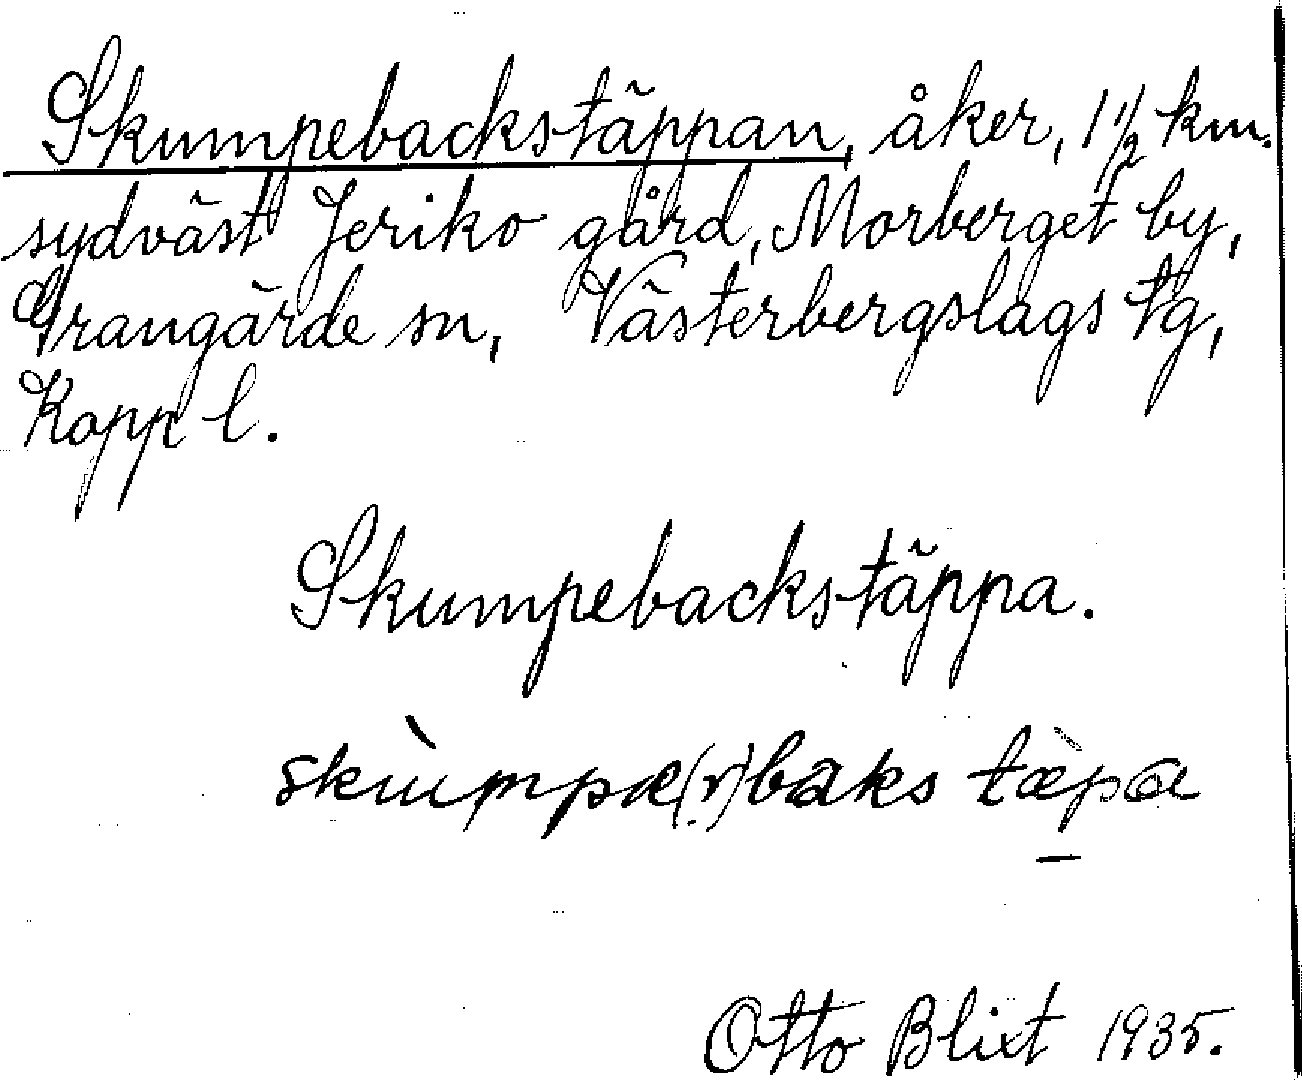 Skumpebackstäppan, åker, 1 1/2 km.
sydväst Jeriko gård, Morberget by,
Grangärde sn, Västerbergslags tg,
Kopp l.
Skumpebackstäppa.
skùmpæ(r)baks tæ̀pa
Otto Blixt 1935.